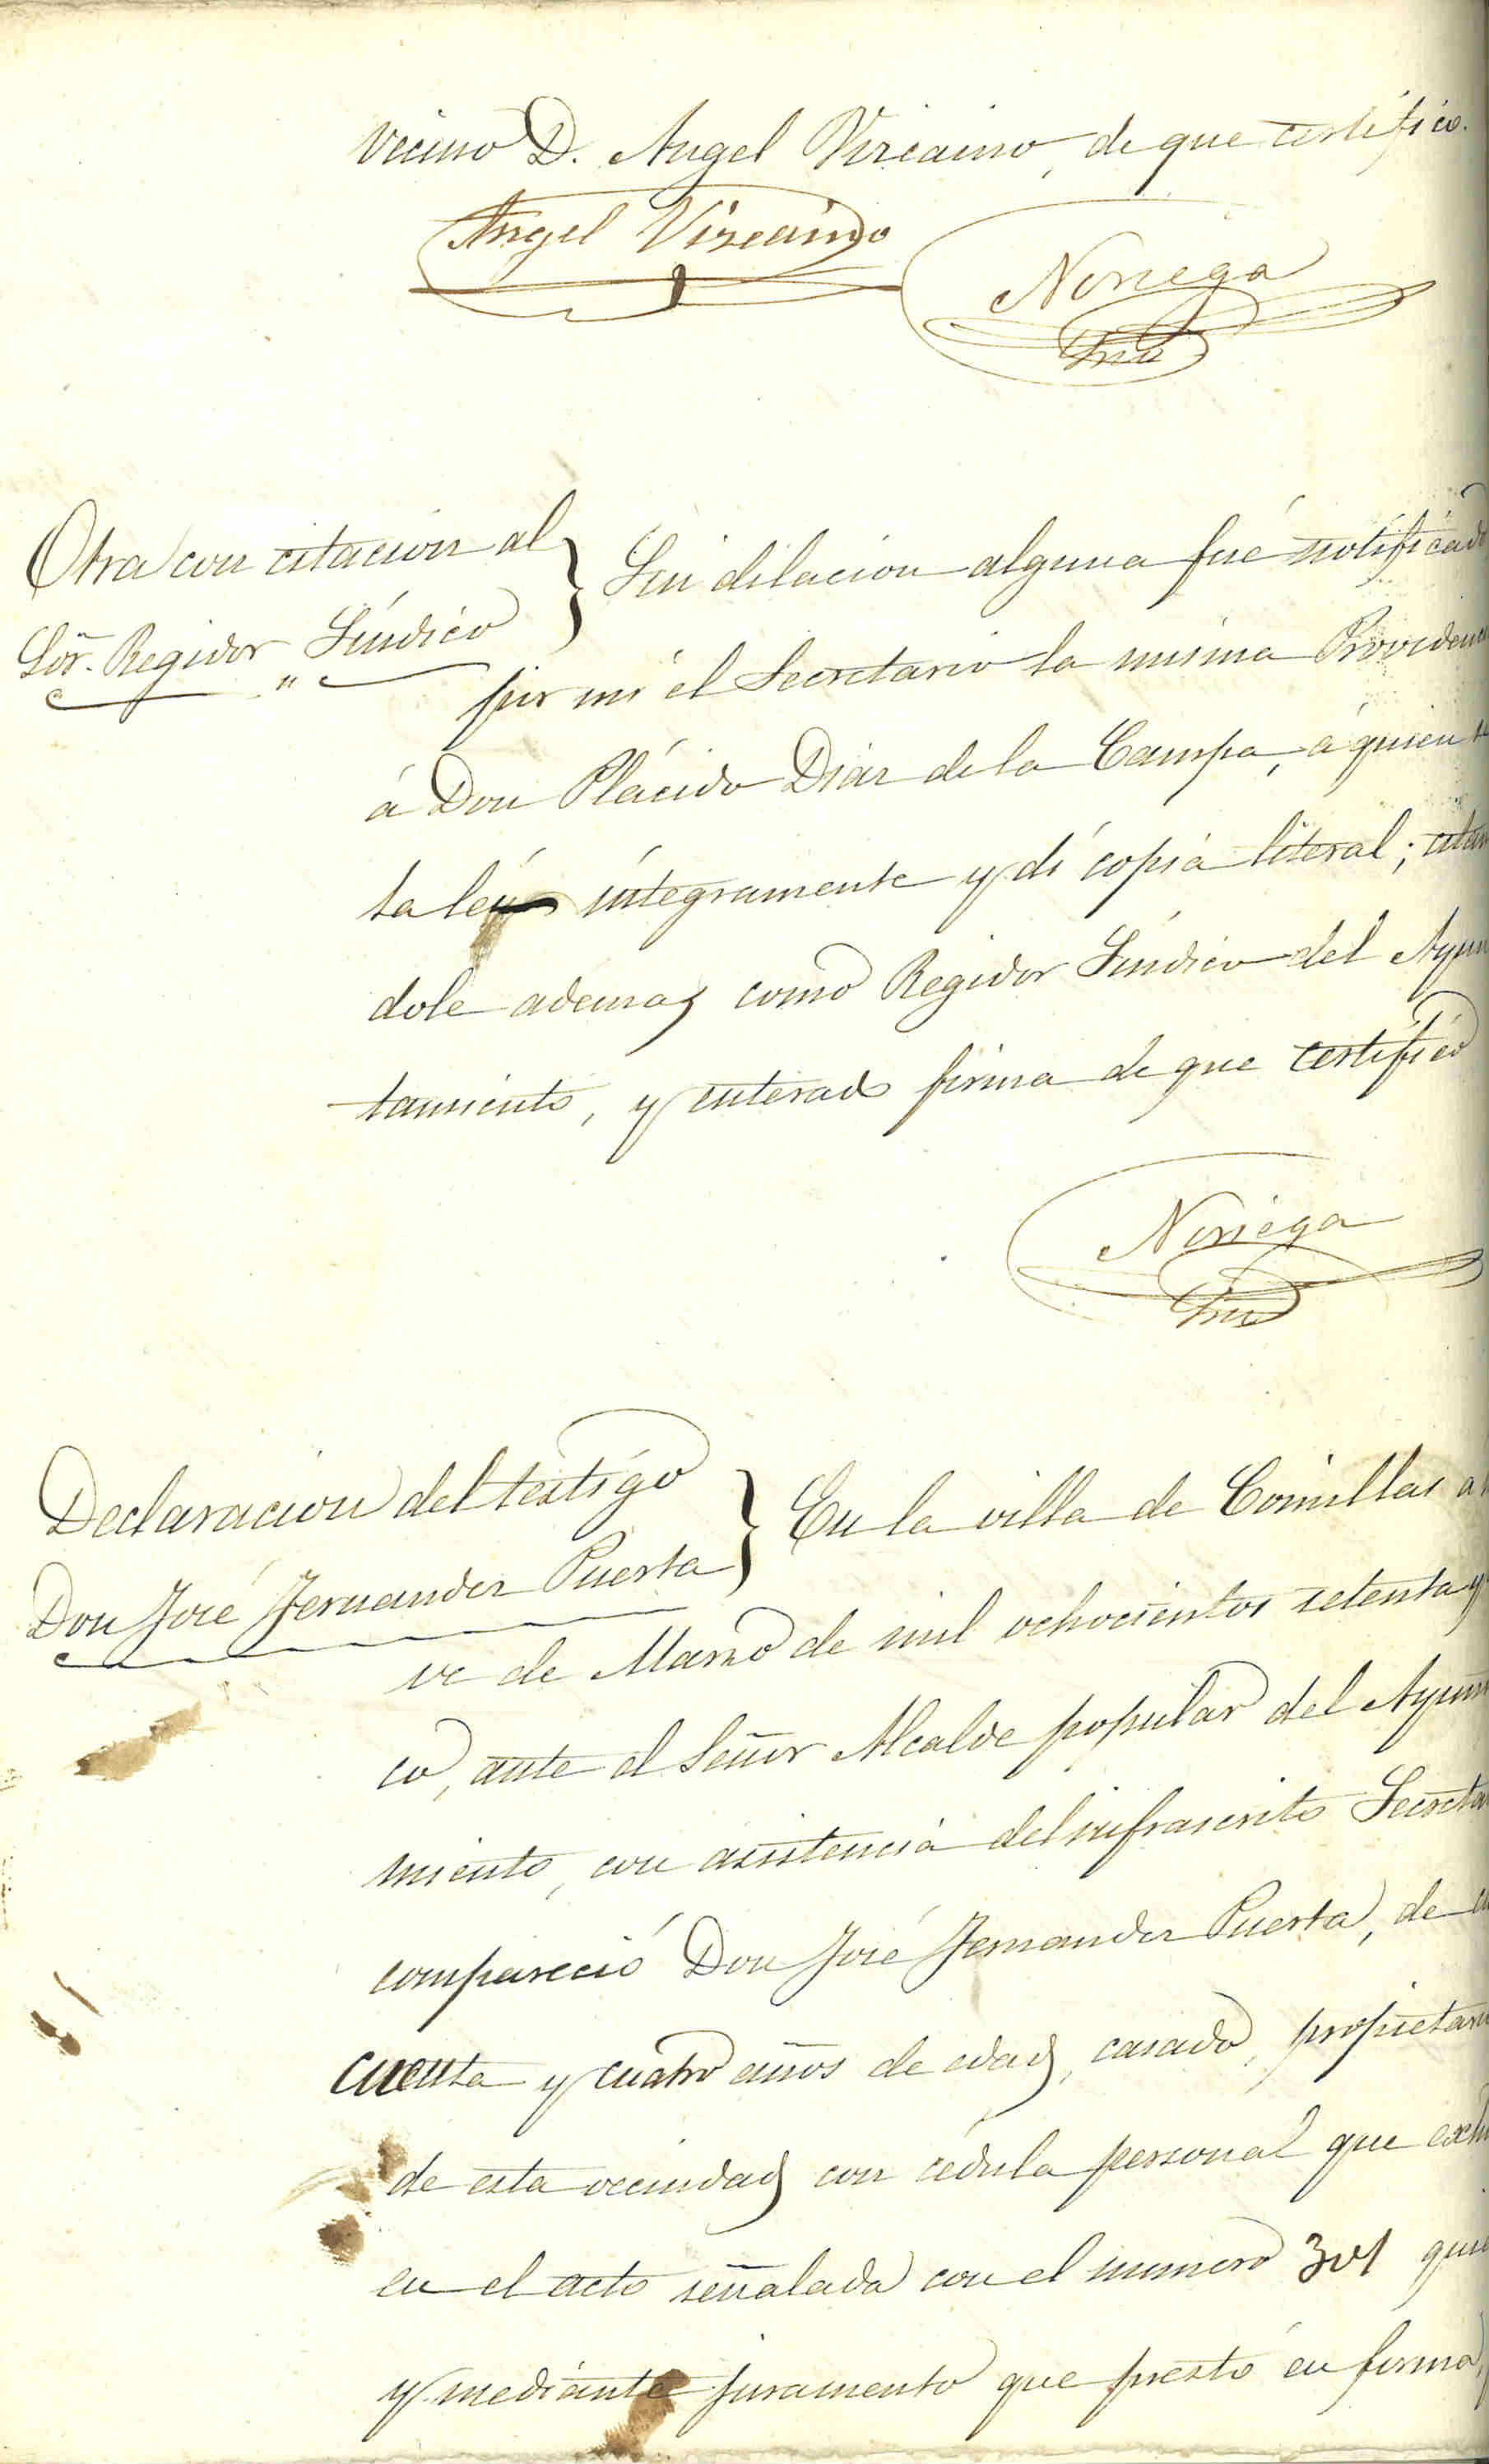 vecino D. Angel Vizcaino, de que certifico.
Angel Vizcaino
Noriega
Srio
Otra con citacion al
Sör. Regidor Síndico
Sin dilacion alguna fué notificad
por mi el Secretario la misma Providen
á Don Plácido Diaz de la Campa, á quien
la leý íntegramente y dí copia literal; citan
dole ademas como Regidor Síndico del Ayun
tamiento, y enterado firma de que certifico
Noriega
Srio
Declaracion del testigo
Don José Fernandez Puerta
En la villa de Comillas a
ve de Marzo de mil ochocientos setenta y
co, ante el Señor Alcalde popular del Ayun
miento, con asistencia del infrascrito Secreta
compareció Don José Fernandez Puerta, de
cuenta y cuatro años de edad, casado, propietar
de esta vecindad con cédula personal que exhi
en el acto señalada con el numero 301 quie
y mediante juramento que prestó en forma,